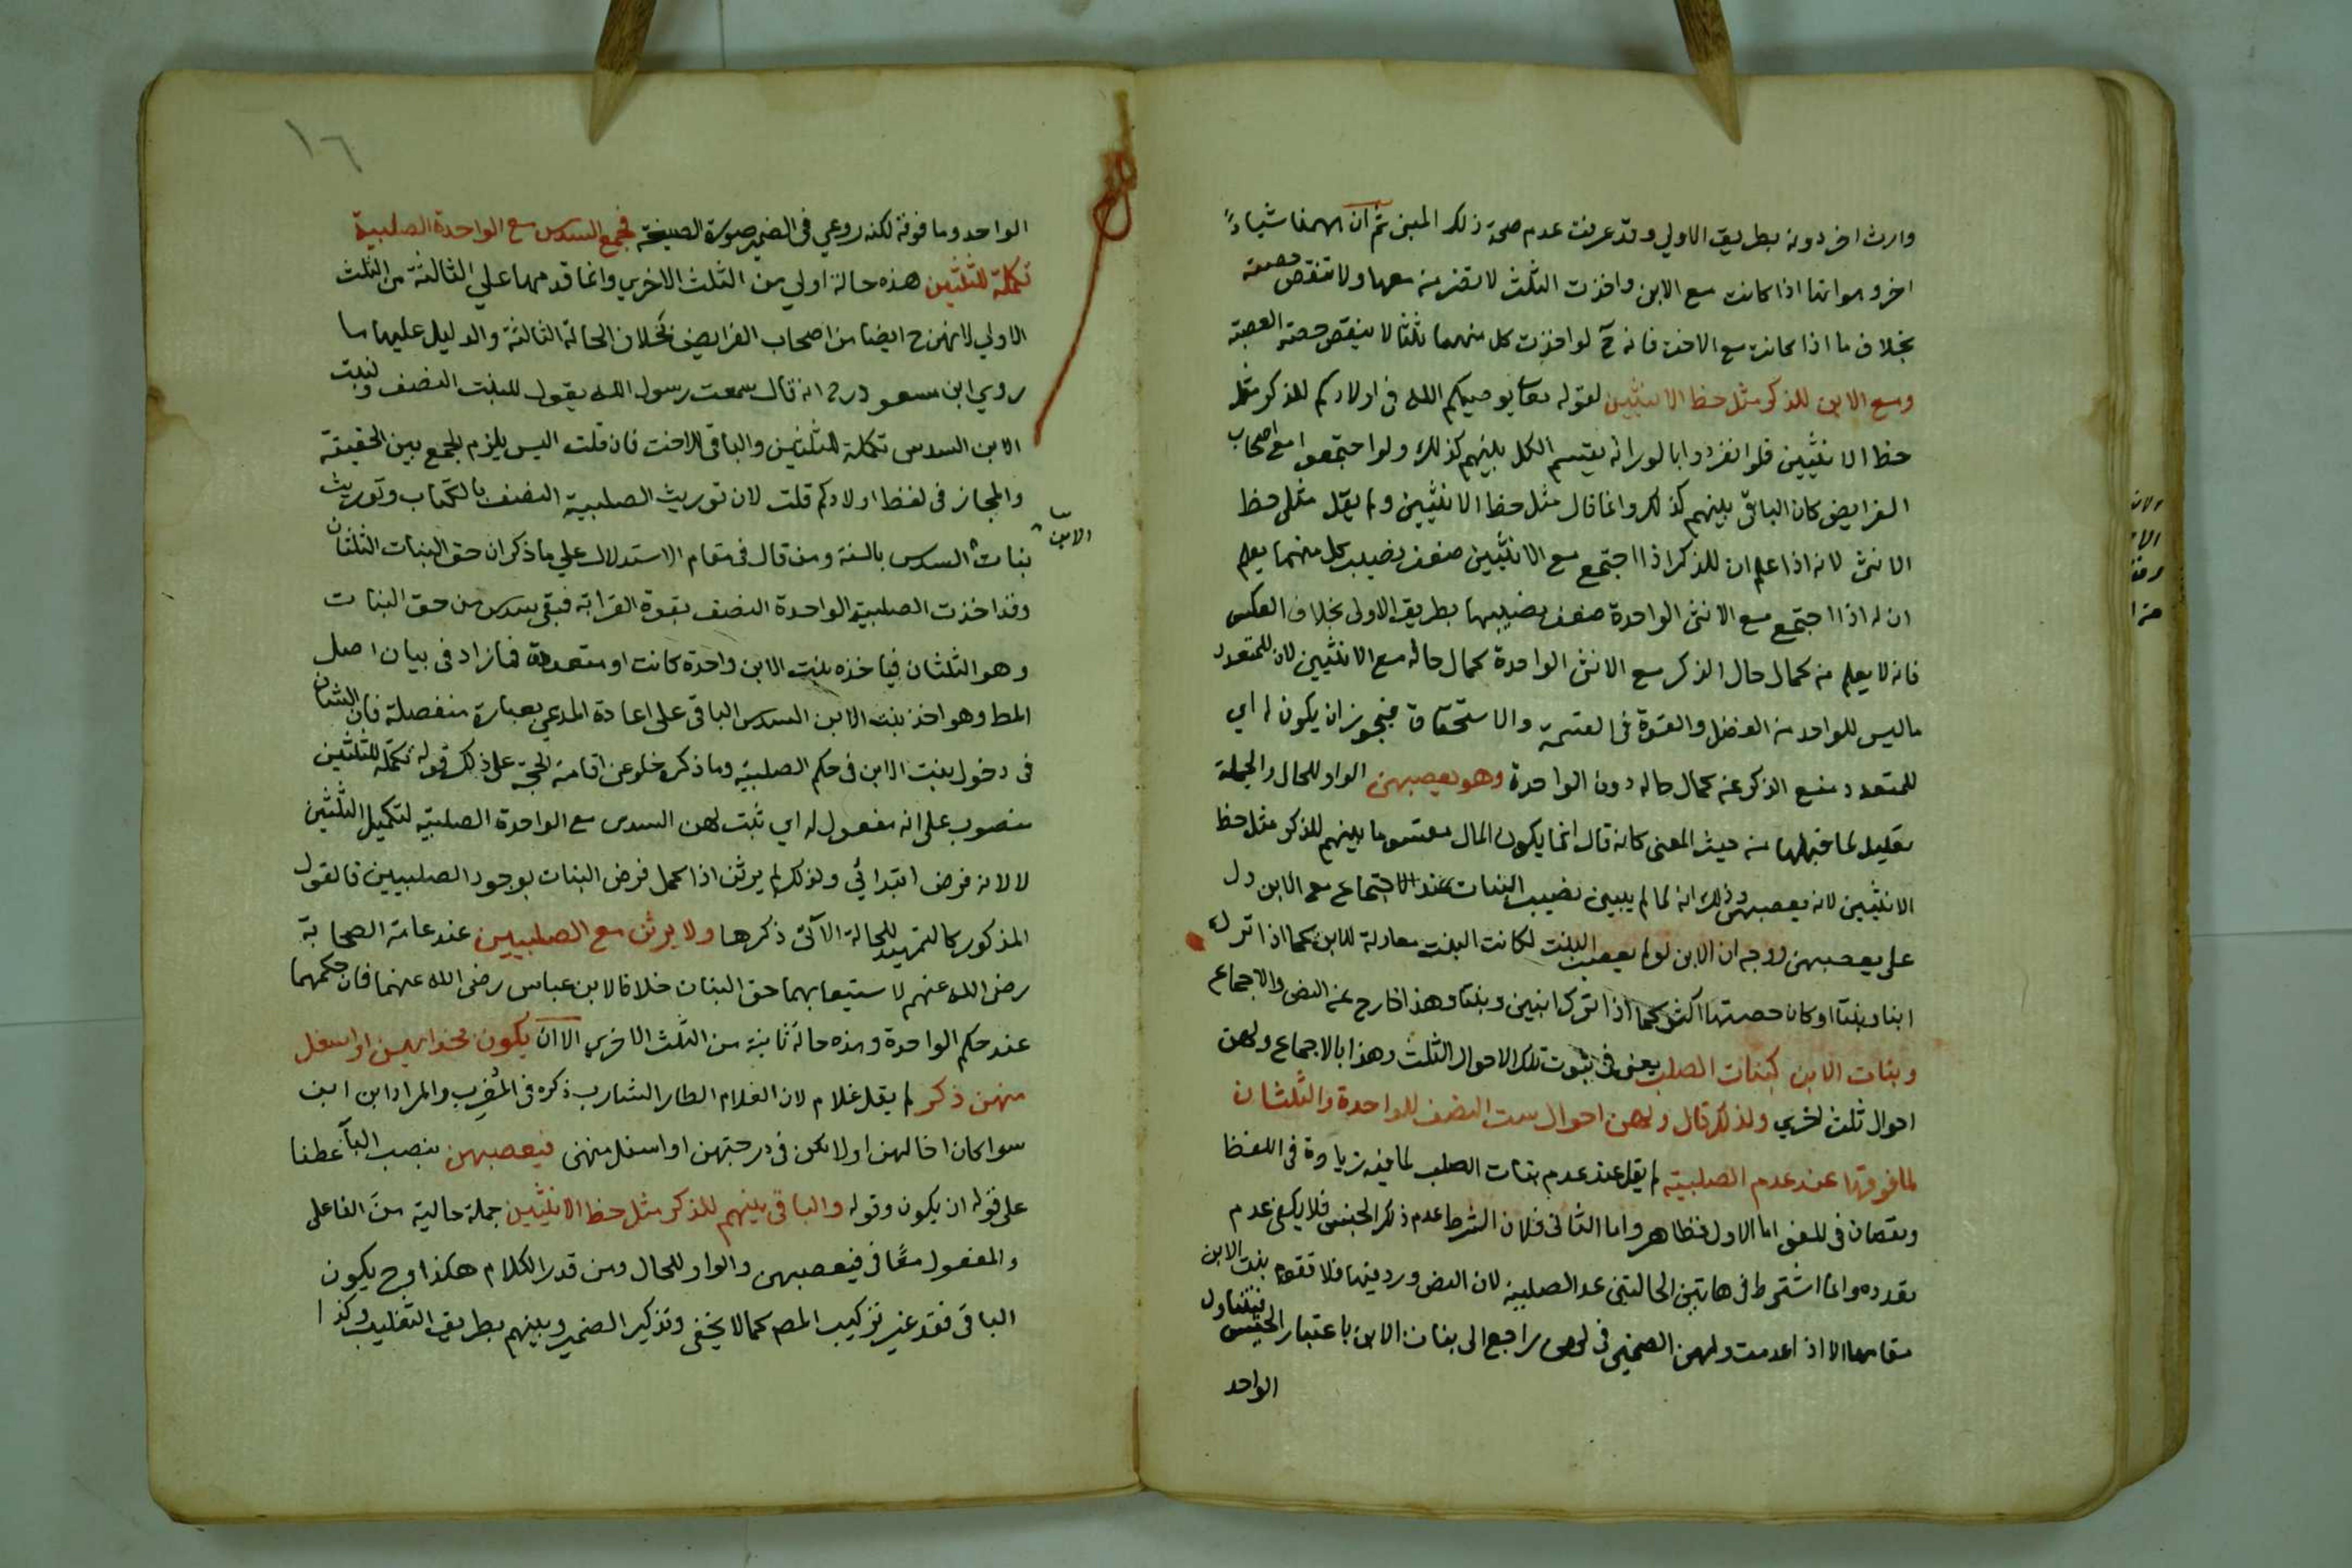 وارث اخر دونه بطريق الاولي وقد عرفت عدم صحة ذلك المبنى ثم ان ههنا شياءً
اخر وهو انها اذا كانت مع الابن واخذت الثلث لا تضر منه معها ولا تنقص حصته
بخلاف ما اذا كانت مع الاخت فانه ح لو اخذت كل منهما ثلثا لا ينقص حصته العصبة
ومع الابن للذكر مثل حظ الانثيين لقوله تعا يوصيكم الله في اولادكم للذكر مثل
حظ الانثيين فلو انفردوا بالوراثه يقسم الكل بينهم كذلك ولو اجتمعوا مع اصحاب
الفرايض كان الباقي بينهم كذلك وانما قال مثل حظ الانثيين ولم يقل مثلي حظ
الانثى لانه اذا علم ان للذكر اذا اجتمع مع الانثيين ضعف نصيب كل منهما يعلم
ان له اذا اجتمع مع الانثى الواحدة ضعف نصيبها بطريق الاولى بخلاف العكس
فانه لا يعلم من كمال حال الذكر مع الانثى الواحدة كمال حاله مع الانثيين لان للمتعدد
ما ليس للواحد من الفضل والقوة في القسمة والاستحقاق فيجوز ان يكون له اي
للمتعدد منع الذكر عن كمال حاله دون الواحدة وهو يعصبهن الواو للحال والجملة
تعليل لما قبلها من حيث المعنى كانه قال انما يكون المال مقسوما بينهم للذكر مثل حظ
الانثيين لانه يعصبهن وذلك انه لما لم يبين نصيب البنات عند الاجتماع مع الابن دل
على يعصبهن ووجه ان الابن لو لم يعصب البنت لكانت البنت معادلة للابن كما اذا ترك
ابنا وبنتا او كان حصتها اكثر كما اذا ترك ابنين وبنتا وهذا خارج عن النص والاجماع
وبنات الابن كبنات الصلب يعنى في ثبوت تلك الاحوال الثلث وهذا بالاجماع ولهن
احوال ثلث اخري ولذلك قال ولهن احوال ست النصف للواحدة والثلثان
لما فوقها عند عدم الصلبية لم يقل عند عدم بنات الصلب لما فيه زيادة في اللفظ
ونقصان في المعنى اما الاول فظاهر واما الثاني فلان الشرط عدم ذلك الجنس فلا يكفى عدم
تعدده وانما اشترط في هاتين الحالتين عدم الصلبية لان النص ورد فيها فلا تقوم بنت الابن
مقامها الا اذا عدمت ولهن الضمير في لهن راجع الى بنات الابن باعتبار الجنس فيتناول
الواحد
١٦
الواحد وما فوقه لكنه روعي في الضمير صورة الصيغة فجمع السدس مع الواحدة الصلبية
تكملة للثلثين هذه حالة اولي من الثلث الاخري وانما قدمها علي الثالثة من الثلث
الاولي لانهن ح ايضا من اصحاب الفرايض بخلاف الحالة الثالثة والدليل عليها ما
روي ابن مسعود رض انه قال سمعت رسول الله يقول للبنت النصف ولبنت
الابن السدس تكملة للثلثين والباقي للاخت فان قلت اليس يلزم الجمع بين الحقيقة
والمجاز في لفظ اولادكم قلت لان توريث الصلبية النصف بالكتاب وتوريث
بنات السدس بالسنة ومن قال في مقام الاستدلال علي ما ذكر ان حق البنات الثلثان
الابن
وقد اخذت الصلبية الواحدة النصف بقوة القرابة فبقي سدس من حق البنات
وهو الثلثان فياخذه بنت الابن واحدة كانت او متعددة فما زاد في بيان اصل
المط وهو اخذ بنت الابن السدس الباقي على اعادة المدعي بعبارة منفصلة فان الشان
في دخول بنت الابن في حكم الصلبية وما ذكره خلو عن اقامة الحجة على ذلك قوله تكملة للثلثين
منصوب على انه مفعول له اي ثبت لهن السدس مع الواحدة الصلبية لتكميل الثلثين
لا لانه فرض ابتدائي ولذلك لم يرثن اذا كمل فرض البنات بوجود الصلبيتين فالقول
المذكور كالتمهيد للحالة الآتي ذكرها ولا يرثن مع الصلبيتين عند عامة الصحابة
رضى الله عنهم لاستيعابهما حق البنات خلافا لابن عباس رضى الله عنهما فان حكمهما
عند حكم الواحدة وهذه حالة ثانية من الثلث الاخري الا ان يكون بحذائهن او اسفل
منهن ذكر لم يقل غلام لان الغلام الطار الشارب ذكره في المُغرِب والمراد ابن ابن
سوا كان اخا لهن او لا يكن في درجتهن او اسفل منهن فيعصبهن بنصب الباء عطفا
على قوله ان يكون وقوله والباقي بينهم للذكر مثل حظ الانثيين جملة حالية من الفاعل
والمفعول معًا في فيعصبهن والواو للحال ومن قدر الكلام هكذا وح يكون
الباقي فقد غير تركيب المصم كما لا يخفى وتذكير الضمير وبينهم بطريق التغليب وكذا